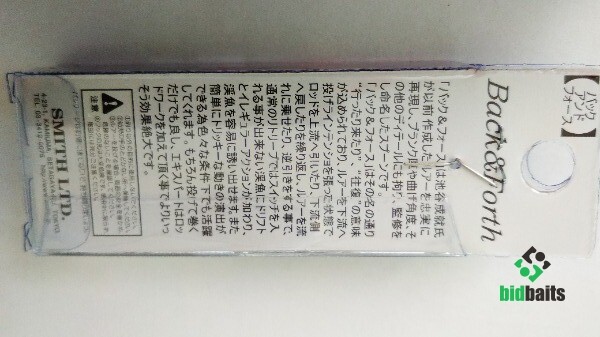 【バックアンドフォース】
Back&Forth
「バック&フォース」は池谷成就氏
が以前作成したルアーを忠実に
再現し、ブランク厚や曲げ角度、そ
の他のディテールにも拘り、監修を
し命名したスプーンです。
「バック&フォース」はその名の通り
“行ったり来たり”、“往復”の意味
が込められており、ルアーを下流へ
投げラインテンションを張った状態で
ロッドを上流へ引いたり、下流側
へ戻したりを繰り返し、ルアーを流
れに乗せたり、逆引きをする事で、
通常のリトリーブではスイッチを入
れる事が出来ない渓魚にドリフト
とイレギュラーアクションが加わり、
渓魚を容易に誘い出せます。また
簡単にトリッキーな動きの演出が
できる為、色々な条件下でも活躍
してくれます。もちろん投げて巻く
だけでも良し、エキスパートはロッ
ドワークを加えて頂く事でよりいっ
そう効果絶大です。
注意
SMITH LTD.
bidbaits